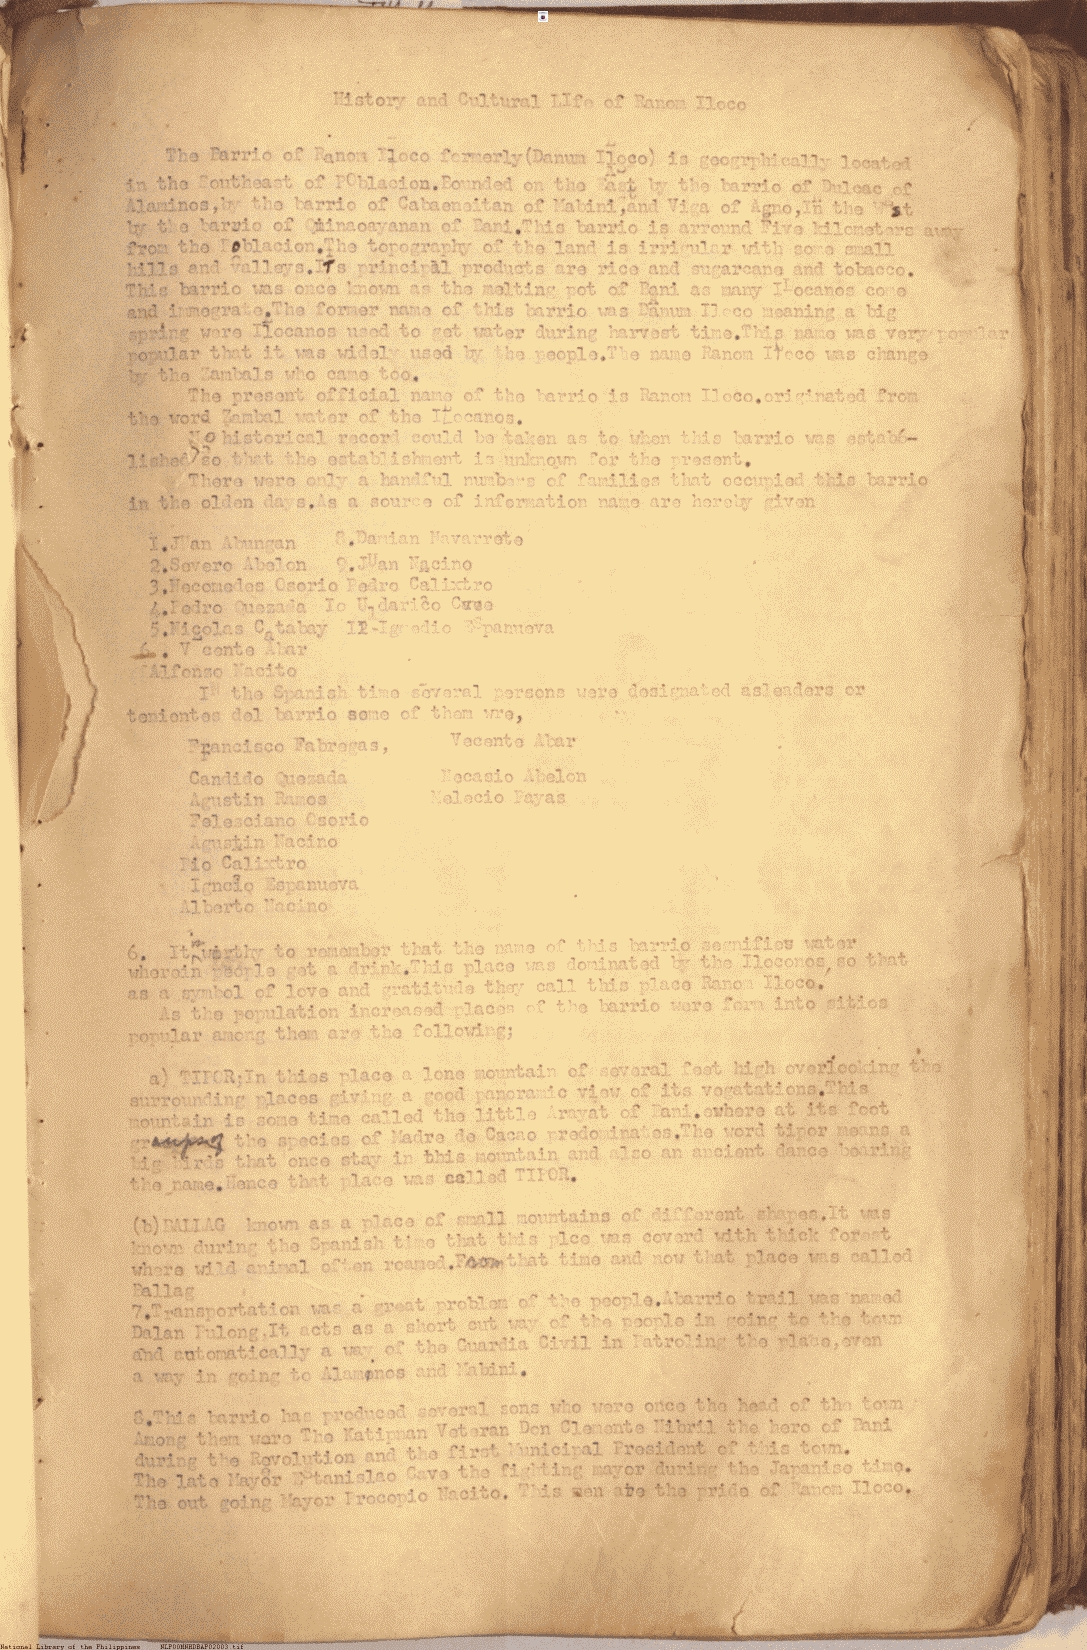 History and Cultural LIfe of Ranom Iloco
The Barrio of Ranom Iloco formerly(Danum Iloco) is geogrphically located
in the Southeast of POblacion.Bounded on the East by the barrio of Dulcac of
Alaminos,by the barrio of Cabaeneitan of Mabini,and Viga of Agno,In the West
by the barrio of Quinaoayanan of Bani.This barrio is arround Five kilometers away
from the Poblacion.The topography of the land is irrigular with some small
hills and valleys.ITs principal products are rice and sugarcane and tobacco.
This barrio was once known as the melting pot of Bani as many ILocanos come
and immograte.The former name of this barrio was Danum Iloco meaning a big
spring were Ilocanos used to get water during harvest time.This name was very popular
popular that it was widely used by the people.The name Ranom Iloco was change
by the Zambals who came too.
The present official name of the barrio is Ranom Iloco.originated from
the word Zambal water of the Ilocanos.
No historical record could be taken as to when this barrio was estab-
lished so that the establishment is unknown for the present.
There were only a handful numbers of families that occupied this barrio
in the olden days.As a source of information name are hereby given
1.JUan Abungan 8.Damian Navarrete
2.Severo Abelon 9.JUan Nacino
3.Necomedes Osorio Pedro Calixtro
4.Pedro Quezada Io Cave
5.Nicolas Catabay Espanueva
6. V cente Abar
Alfonso Nacito
IN the Spanish time several persons were designated asleaders or
tenientes del barrio some of them wre,
Francisco Fabregas, Vecente Abar
Candido Quezada Necasio Abelon
Agustin Ramos Melecio Payas
Felesciano Osorio
Agustin Nacino
Pio Calixtro
Igncio Espanueva
Alberto Nacino
6. It worthy to remember that the name of this barrio segnifies water
wherein people get a drink.This place was dominated by the Iloconos,so that
as a symbol of love and gratitude they call this place Ranom Iloco.
As the population increased places of the barrio were form into sitios
popular among them are the following;
a) TIPOR;In thies place a lone mountain of several feet high overlooking the
surrounding places giving a good panoramic view of its vegatations.This
mountain is some time called the little Arayat of Bani.ewhere at its foot
groups of the species of Madre de Cacao predominates.The word tipor means a
big birds that once stay in this mountain and also an ancient dance bearing
the name.Hence that place was called TIPOR.
(b)BALLAG known as a place of small mountains of different shapes.It was
known during the Spanish time that this plce was coverd with thick forest
where wild animal often roamed.From that time and now that place was called
Ballag
7.Transportation was a great problem of the people.Abarrio trail was named
Dalan Pulong,It acts as a short cut way of the people in going to the town
and automatically a way of the Guardia Civil in Patroling the place,even
a way in going to Alamonos and Mabini.
8.This barrio has produced several sons who were once the head of the town
Among them were The Katipman Veteran Don Clemente Nibril the hero of Bani
during the Revolution and the first Municipal President of this town.
The late Mayor EStanislao Cave the fighting mayor during the Japanise time.
The out going Mayor Procopio Nacito. This men are the pride of Ranom Iloco.
National Library of the Philippines